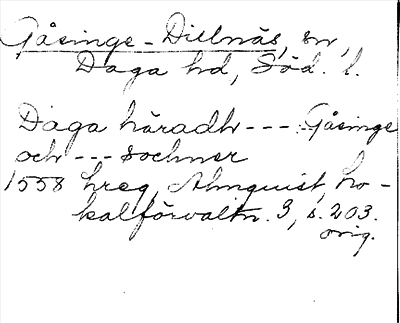 Gåsinge-Dillnäs, sn,
Daga hd, Söd. l.
Daga häradh --- Gåsinge
och --- sochner
1558 hreg, Almquist, Lo-
kalförvaltn. 3, s. 203.
orig.